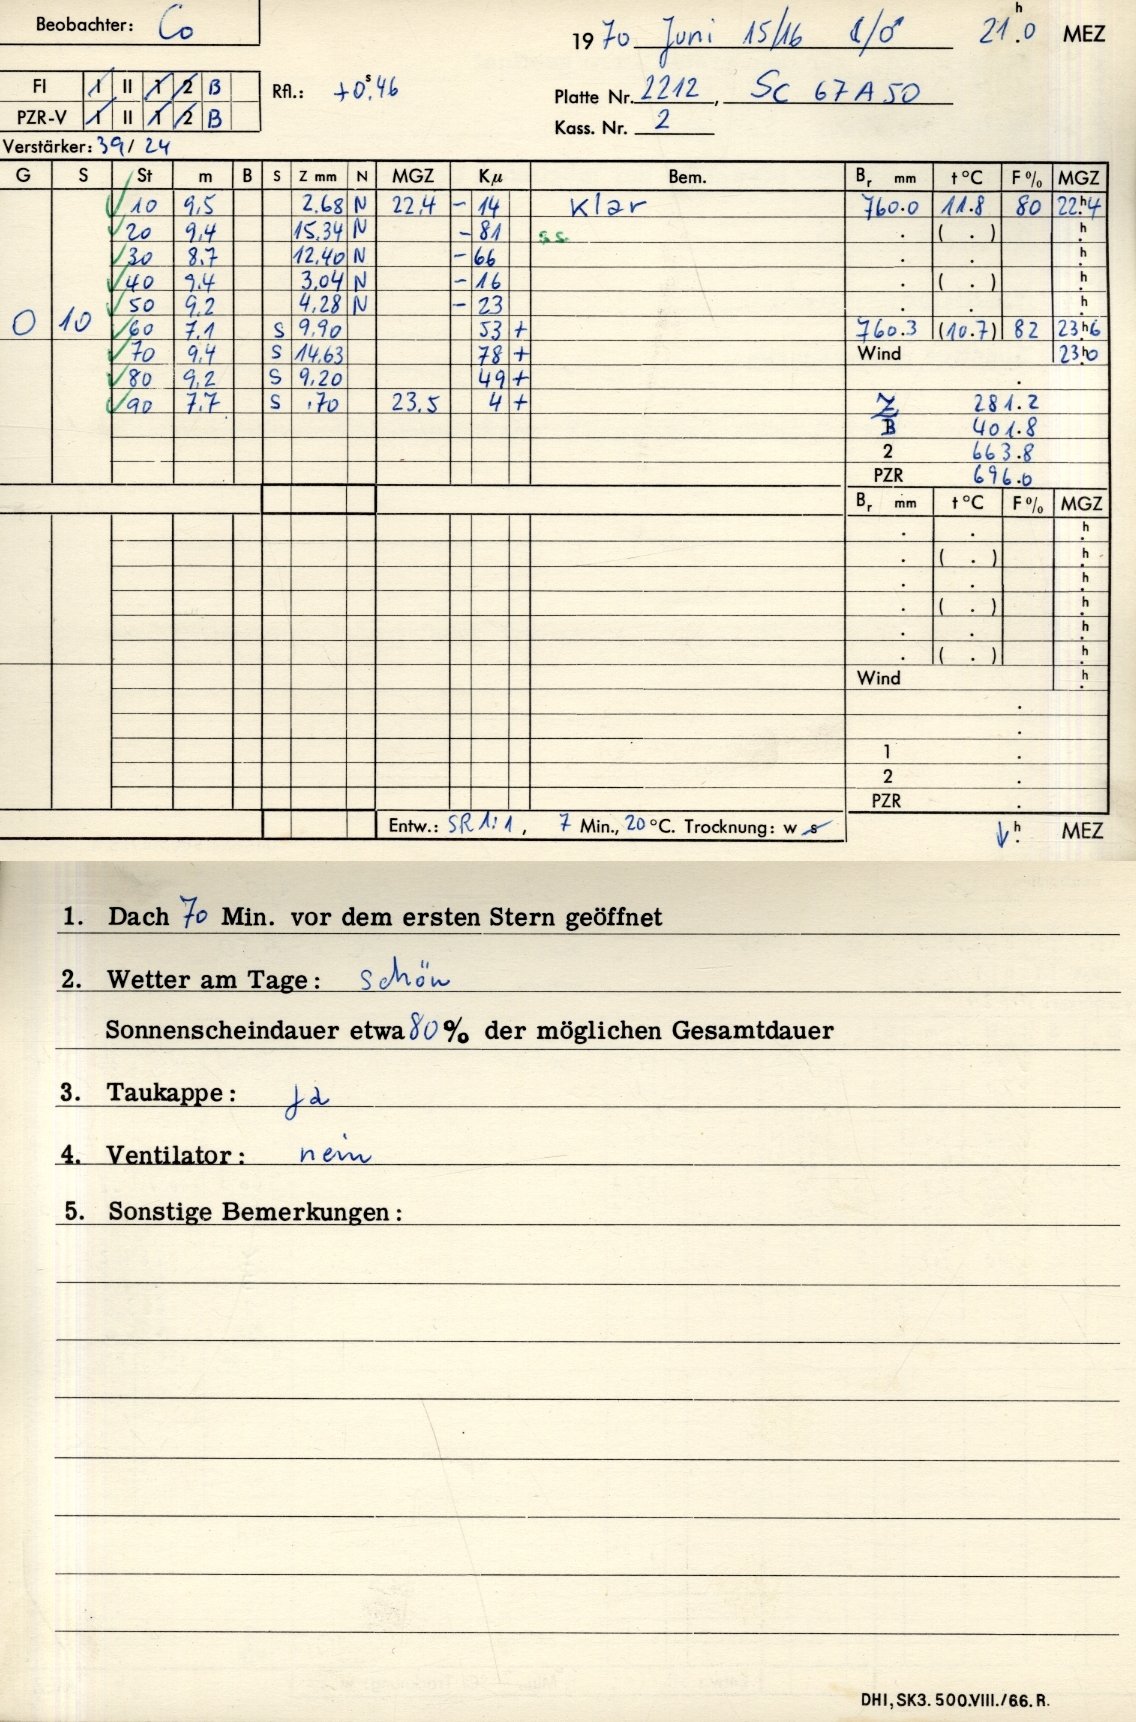 Beobachter: Co
1970 Juni 15/16 ☾/♂ 21.ʰ0 MEZ
FI 1 II 1 2 B
Rfl.: +0ˢ.46
Platte Nr. 2212, Sc 67 A 50
PZR-V 1 II 1 2 B
Kass. Nr. 2
Verstärker: 39/24
G S St m B S Z mm N MGZ Kμ Bem. Bᵣ mm t °C F % MGZ
10 9,5 2,68 N 22,4 - 14 Klar 760.0 11.8 80 22.ʰ4
20 9,4 15,34 N - 81 s.s. . ( . ) .ʰ
30 8,7 12,40 N - 66 . . .ʰ
40 9,4 3,04 N - 16 . ( . ) .ʰ
50 9,2 4,28 N - 23 . . .ʰ
0 10 60 7,1 S 9,90 53 + 760.3 (10.7) 82 23.ʰ6
70 9,4 S 14,63 78 + Wind 23.ʰ0
80 9,2 S 9,20 49 + .
90 7,7 S ,70 23,5 4 + Z 281.2
B 401.8
2 663.8
PZR 696.0
Bᵣ mm t °C F % MGZ
. . .ʰ
. ( . ) .ʰ
. . .ʰ
. ( . ) .ʰ
. . .ʰ
. ( . ) .ʰ
Wind .ʰ
.
.
1 .
2 .
PZR .
Entw.: SR 1:1, 7 Min., 20 °C. Trocknung: w s ↓.ʰ MEZ
1. Dach 70 Min. vor dem ersten Stern geöffnet
2. Wetter am Tage: schön
Sonnenscheindauer etwa 80 % der möglichen Gesamtdauer
3. Taukappe: ja
4. Ventilator: nein
5. Sonstige Bemerkungen:
DHI, SK3. 500.VIII./66. R.